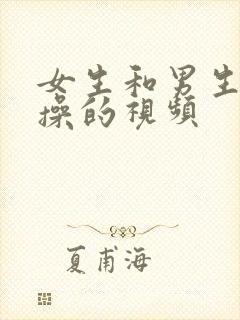 女生和男生
操的視頻
夏甫海